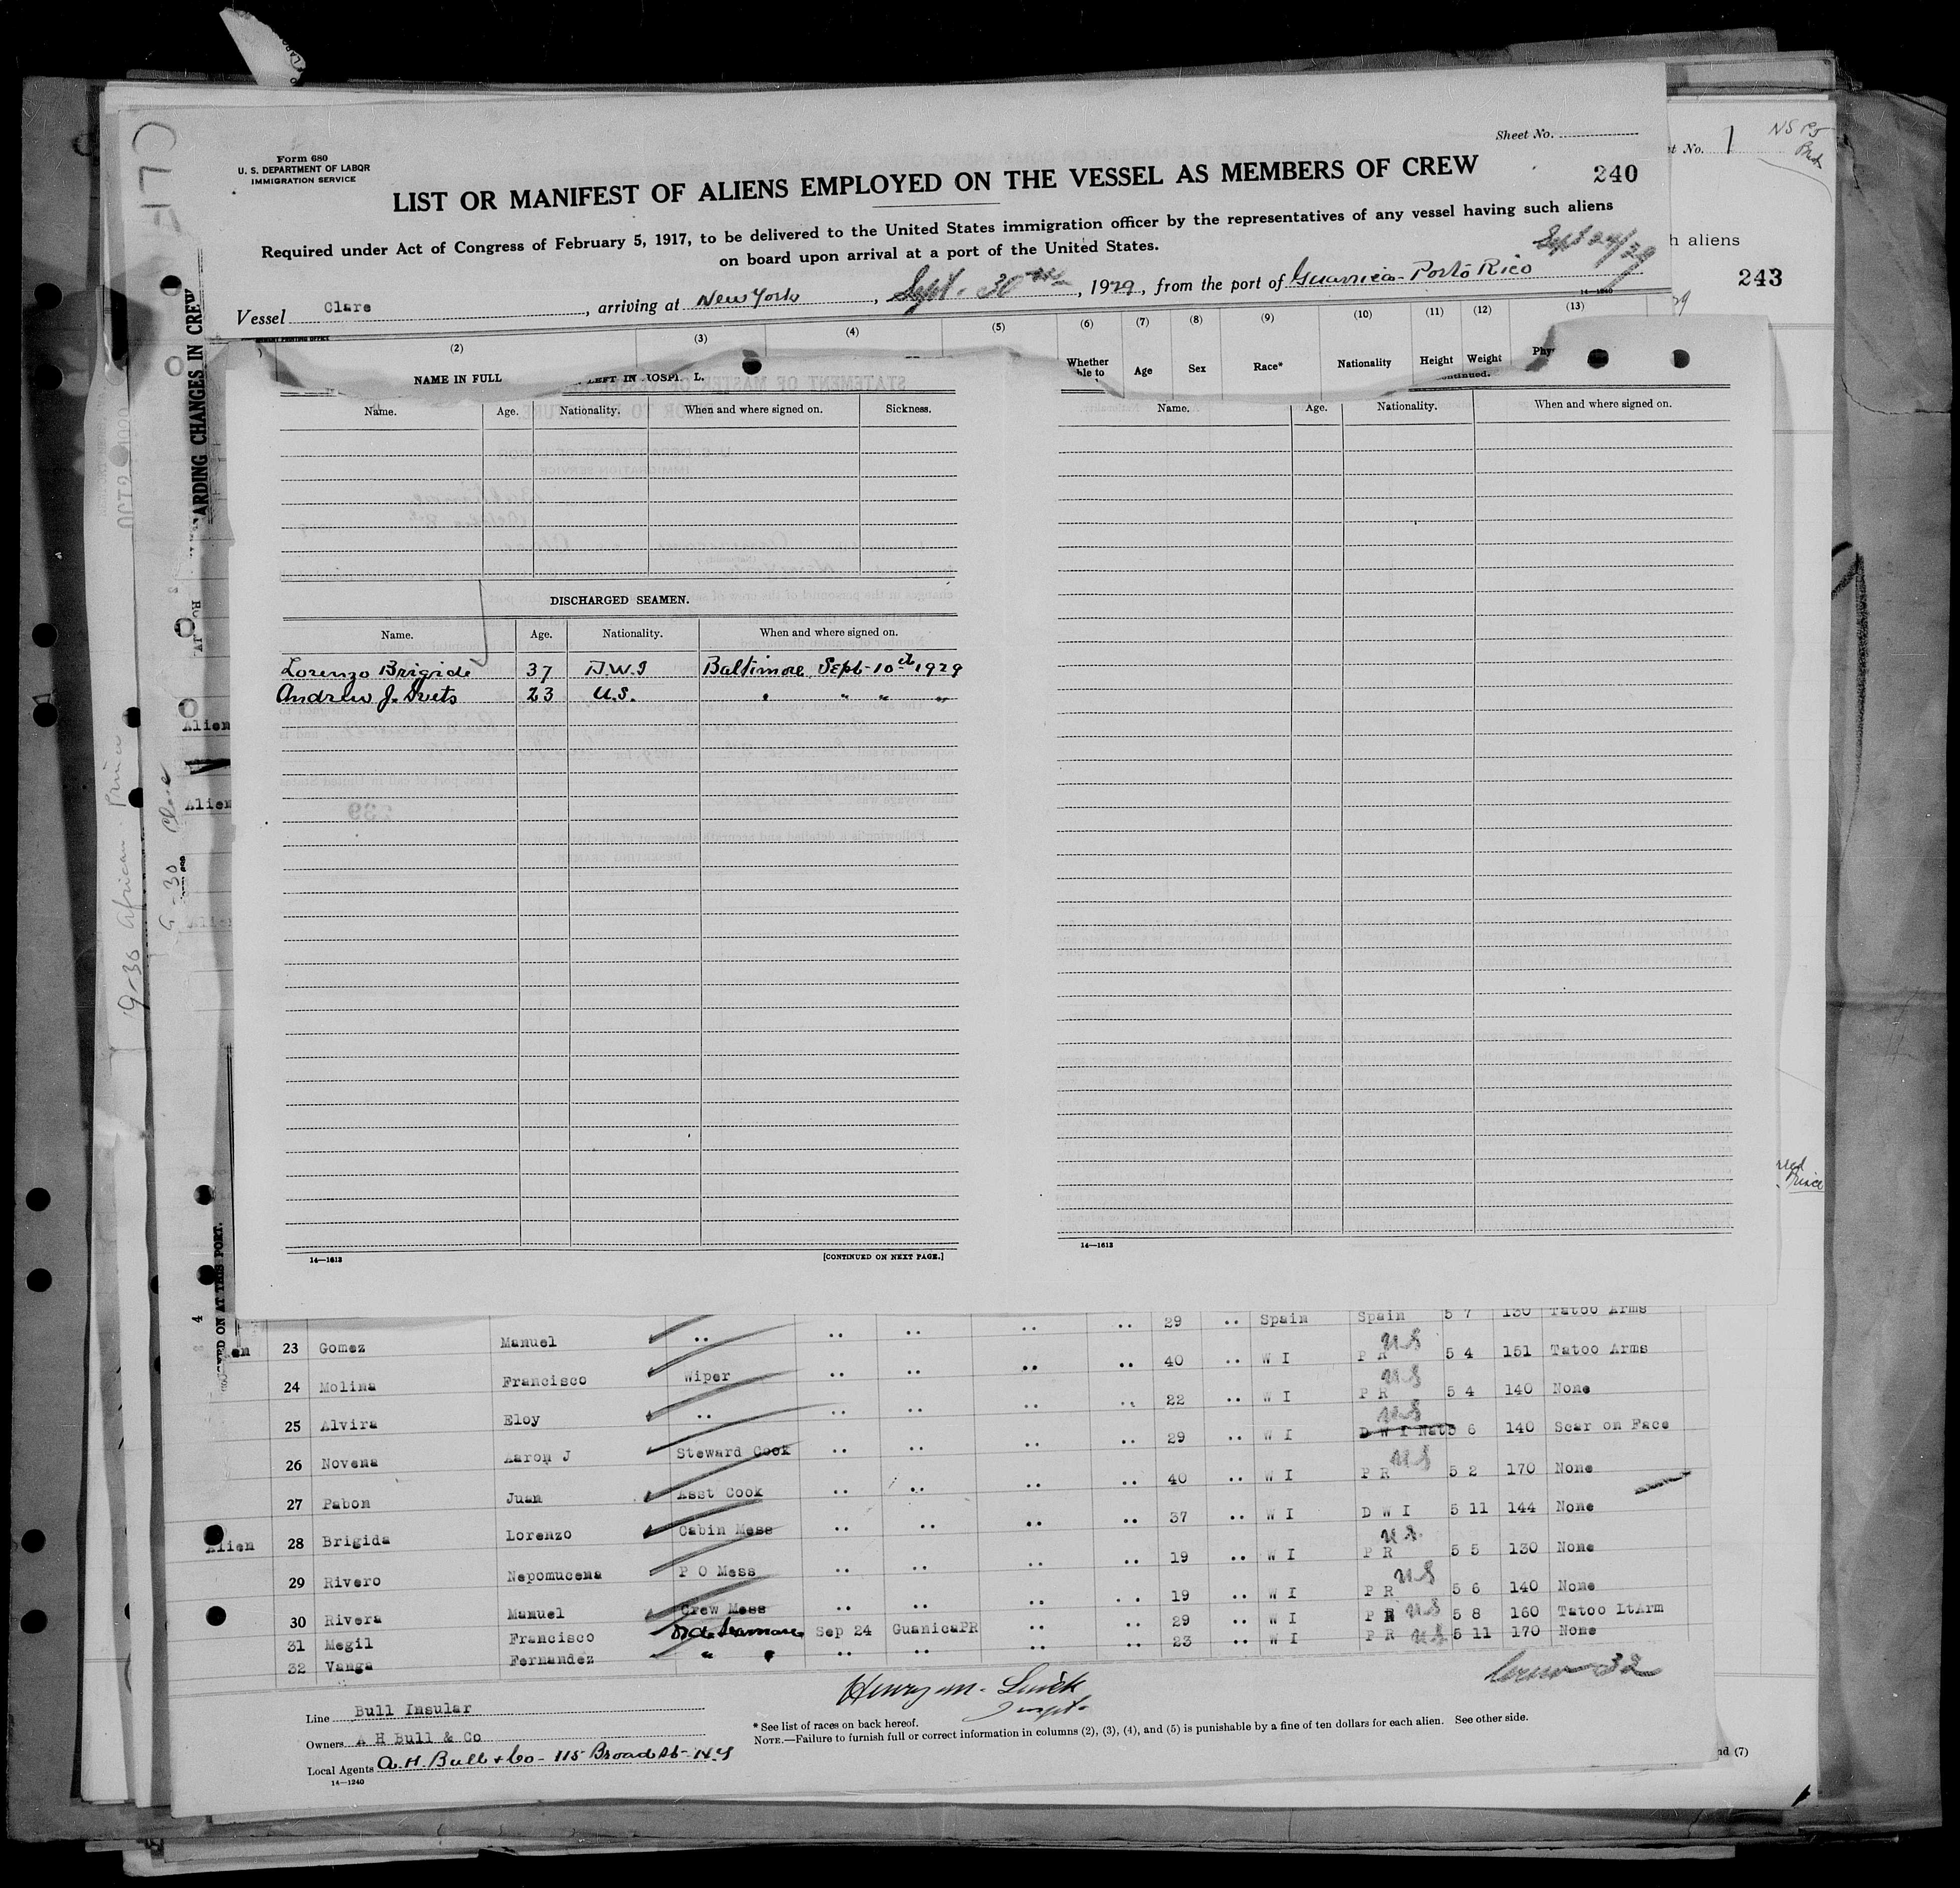 Sheet No.
Form 680
U. S. DEPARTMENT OF LABOR
IMMIGRATION SERVICE
LIST OR MANIFEST OF ALIENS EMPLOYED ON THE VESSEL AS MEMBERS OF CREW
240
Required under Act of Congress of February 5, 1917, to be delivered to the United States immigration officer by the representatives of any vessel having such aliens
on board upon arrival at a port of the United States.
Sept 24/29
Vessel Clare, arriving at New York, Sept. 30th, 1929, from the port of Guanica - Porto Rico
14—1240
(2) (3) (4) (5) (6) (7) (8) (9) (10) (11) (12) (13)
NAME IN FULL
LEFT IN HOSPI L.
Whether
Age Sex Race* Nationality Height Weight
Name. Age. Nationality. When and where signed on. Sickness.
Name. Age. Nationality. When and where signed on.
DISCHARGED SEAMEN.
Name. Age. Nationality. When and where signed on.
Lorenzo Brigide 37 D.W.I Baltimore Sept-10th 1929
Andrew J. 23 U.S. " " " "
14—1613 [CONTINUED ON NEXT PAGE.]
14—1613
.. .. .. .. .. 29 .. Spain Spain 5 7 130 Tatoo Arms
23 Gomez Manuel .. .. .. .. .. 40 .. W I P R US 5 4 151 Tatoo Arms
24 Molina Francisco Wiper .. .. .. .. 22 .. W I P R US 5 4 140 None
25 Alvira Eloy .. .. .. .. .. 29 .. W I D W I Nat US 5 6 140 Scar on Face
26 Novena Aaron J Steward Cook .. .. .. .. 40 .. W I P R US 5 2 170 None
27 Pabon Juan Asst Cook .. .. .. .. 37 .. W I D W I 5 11 144 None
Alien 28 Brigida Lorenzo Cabin Mess .. .. .. .. 19 .. W I P R US 5 5 130 None
29 Rivero Nepomucena P O Mess .. .. .. .. 19 .. W I P R US 5 6 140 None
30 Rivera Manuel Crew Mess .. .. .. .. 29 .. W I P R US 5 8 160 Tatoo LtArm
31 Megil Francisco Ord. Seaman Sep 24 GuanicaPR .. .. 23 .. W I P R US 5 11 170 None
32 Vanga Fernandez " " .. ..
Crew 32
Henry M.
Inspt.
Line Bull Insular
Owners A H Bull & Co
Local Agents A. H. Bull & Co - 115 Broad St - N.Y
14—1240
* See list of races on back hereof.
NOTE.—Failure to furnish full or correct information in columns (2), (3), (4), and (5) is punishable by a fine of ten dollars for each alien. See other side.
No. 1
h aliens
243
nd (7)
ARDING CHANGES IN CREW
Alien
Alien
9-30 African Prince
9-30 Clare
ON AT THIS PORT.
4